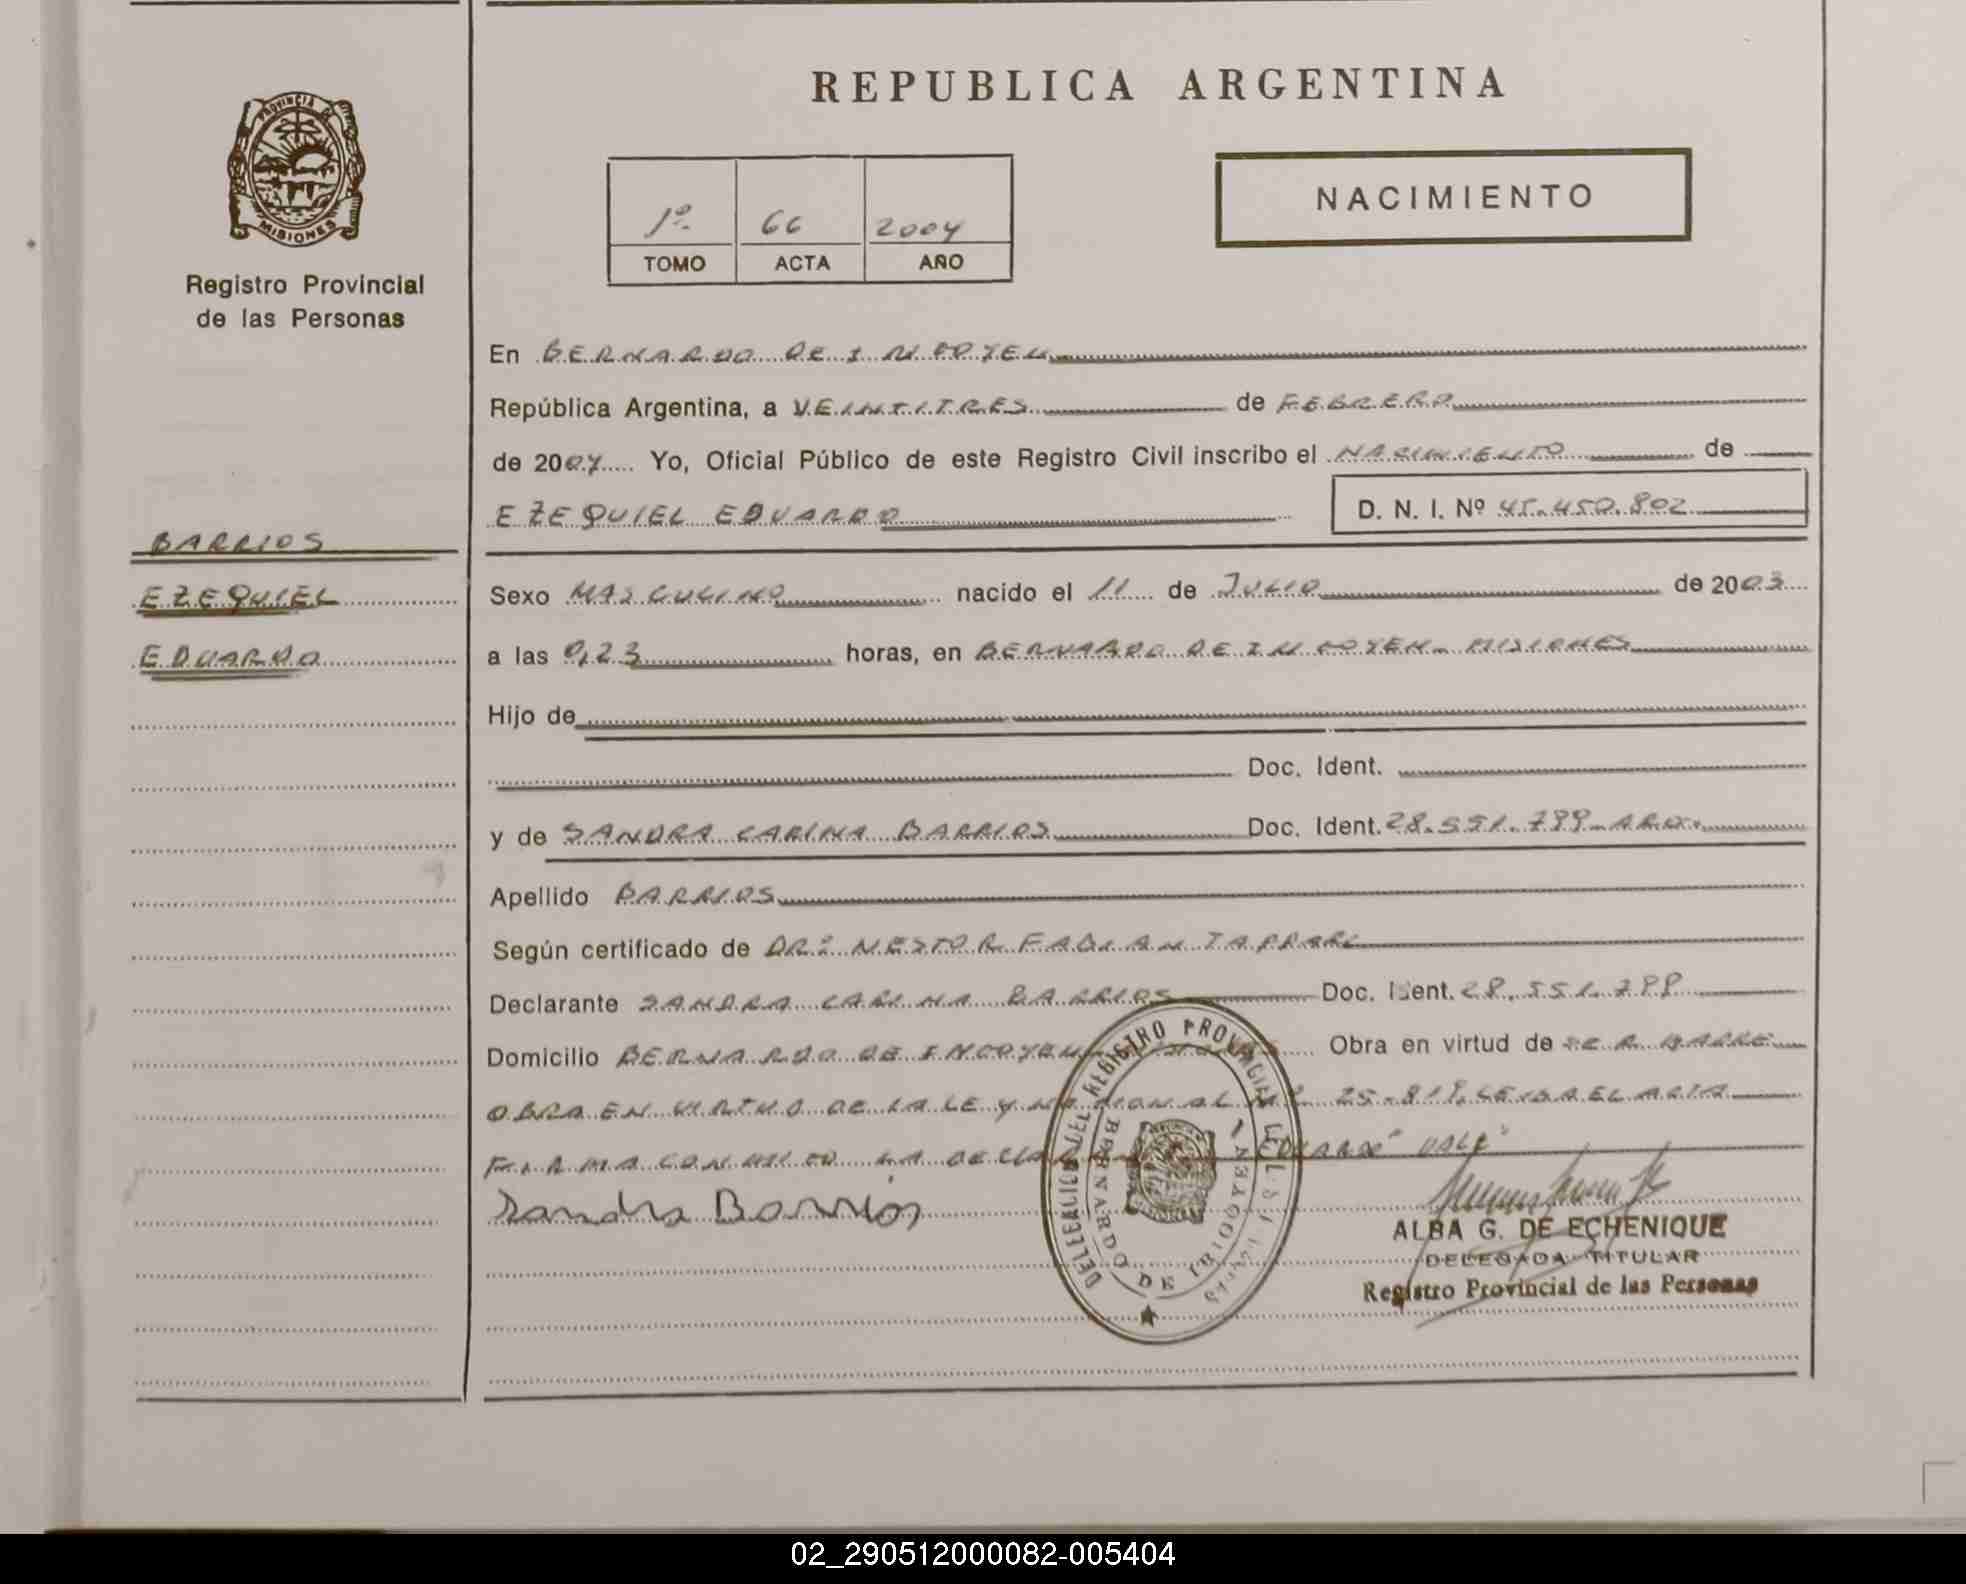 REPUBLICA ARGENTINA
PROVINCIA DE
MISIONES
Registro Provincial
de las Personas
1º 66 2004
TOMO ACTA AÑO
NACIMIENTO
En BERNARDO DE IRIGOYEN
República Argentina, a VEINTITRES de FEBRERO
de 2004 Yo, Oficial Público de este Registro Civil inscribo el NACIMIENTO de
EZEQUIEL EDUARDO D. N. I. Nº 45.450.802
BARRIOS
EZEQUIEL
EDUARDO
Sexo MASCULINO nacido el 11 de JULIO de 2003
a las 0,23 horas, en BERNARDO DE IRIGOYEN - MISIONES
Hijo de
Doc. Ident.
y de SANDRA CARINA BARRIOS Doc. Ident. 28.551.799 - ARG.
Apellido BARRIOS
Según certificado de DR: NESTOR FABIAN
Declarante SANDRA CARINA BARRIOS Doc. Ident. 28.551.799
Domicilio BERNARDO DE IRIGOYEN Obra en virtud de SER MADRE
OBRA EN VIRTUD DE LA LEY NACIONAL Nº 25.819. LEIDA EL ACTA
FIRMA CONMIGO LA "EDUARDO" VALE
Sandra Barrios
DELEGACION DEL REGISTRO PROVINCIAL DE LAS
BERNARDO DE IRIGOYEN
ALBA G. DE ECHENIQUE
DELEGADA TITULAR
Registro Provincial de las Personas
02_290512000082-005404